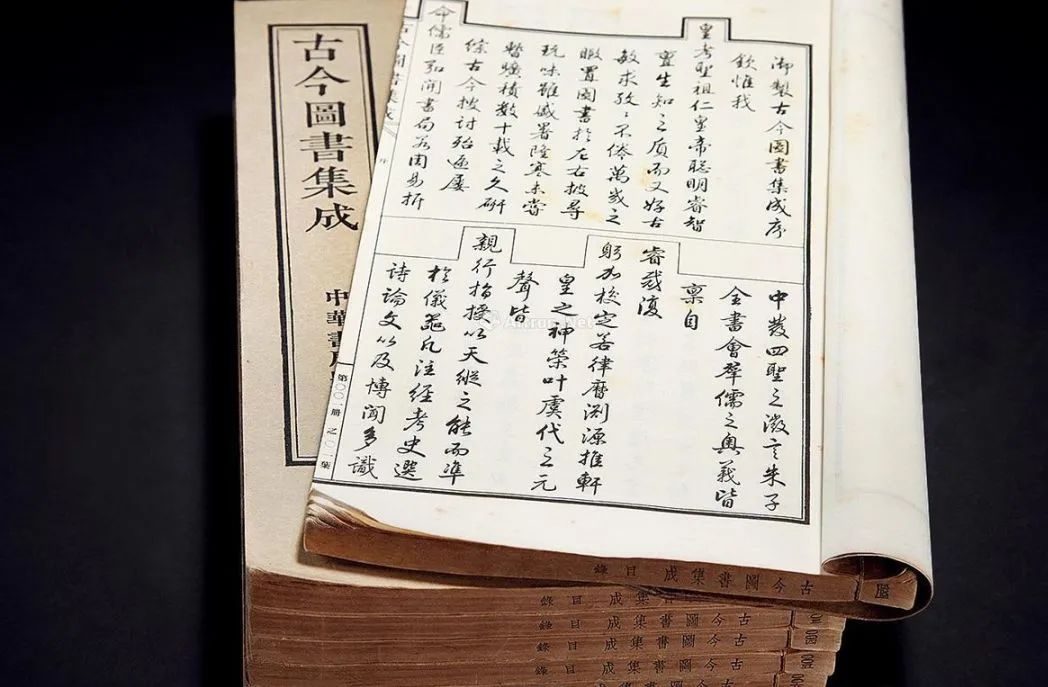 古今圖書集成
中華書局
御製古今圖書集成序
欽惟我
皇考聖祖仁皇帝聰明睿智
亶生知之質而又好古
敏求孜孜不倦萬幾之
暇置圖書於左右披尋
玩味雖盛署隆寒未嘗
暫曠積數十載之久研
綜古今搜討殆遍屢
命儒臣弘開書局若周易折
中發四聖之微言朱子
全書會羣儒之奧義皆
稟自
睿裁復
躬加校定若律曆淵源推軒
皇之神策叶虞代之元
聲皆
親行指授以天縱之能而準
於儀器凡注經考史選
詩論文以及博聞多識
古今圖書集成
序
第〇〇一册之〇一葉
古今圖書集成 目錄
古今圖書集成 目錄
古今圖書集成 目錄
古今圖書集成 目錄
古今圖書集成 目錄